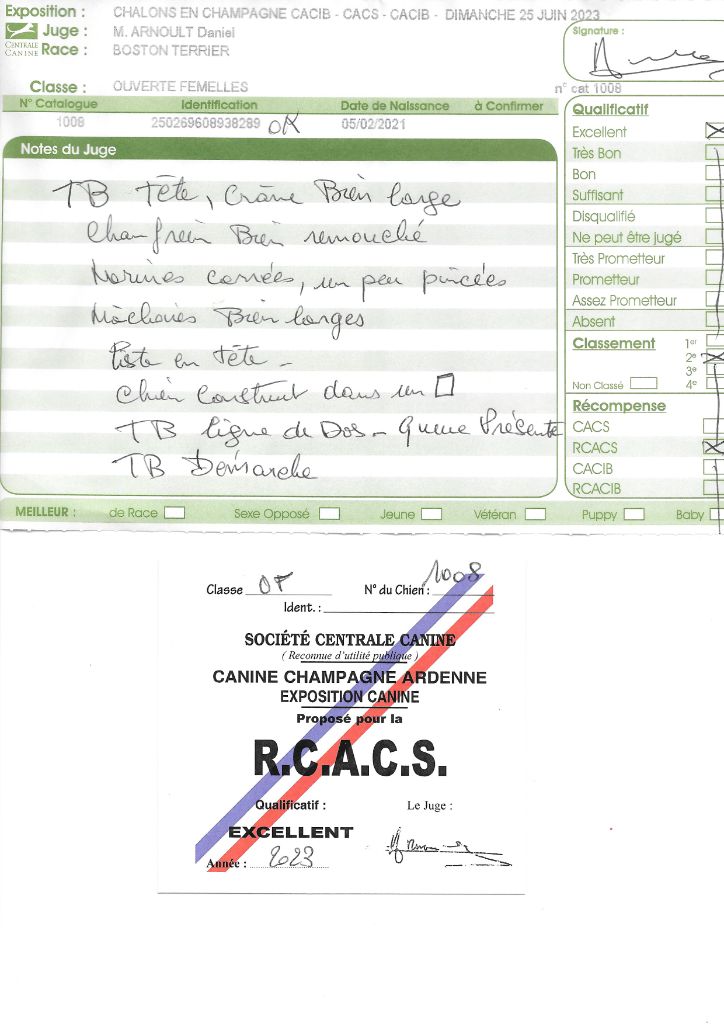 Exposition : CHALONS EN CHAMPAGNE CACIB - CACS - CACIB - DIMANCHE 25 JUIN 2023
Juge : M. ARNOULT Daniel
CENTRALE CANINE
Race : BOSTON TERRIER
Signature :
Classe : OUVERTE FEMELLES
n° cat 1008
N° Catalogue Identification Date de Naissance à Confirmer
1008 250269608938289 OK 05/02/2021
Notes du Juge
TB Tête, Crâne Bien large
Chanfrein Bien remouché
Narines carrées, un peu pincées
Mâchoires Bien larges
Liste en Tête -
Chien Construit dans un □
TB ligne de Dos - queue Présente
TB Démarche
Qualificatif
Excellent
Très Bon
Bon
Suffisant
Disqualifié
Ne peut être jugé
Très Prometteur
Prometteur
Assez Prometteur
Absent
Classement 1er
2e
3e
Non Classé 4e
Récompense
CACS
RCACS
CACIB
RCACIB
MEILLEUR : de Race Sexe Opposé Jeune Vétéran Puppy Baby
Classe OF N° du Chien : 1008
Ident. :
SOCIÉTÉ CENTRALE CANINE
( Reconnue d'utilité publique )
CANINE CHAMPAGNE ARDENNE
EXPOSITION CANINE
Proposé pour la
R.C.A.C.S.
Qualificatif : Le Juge :
EXCELLENT
Année : 2023